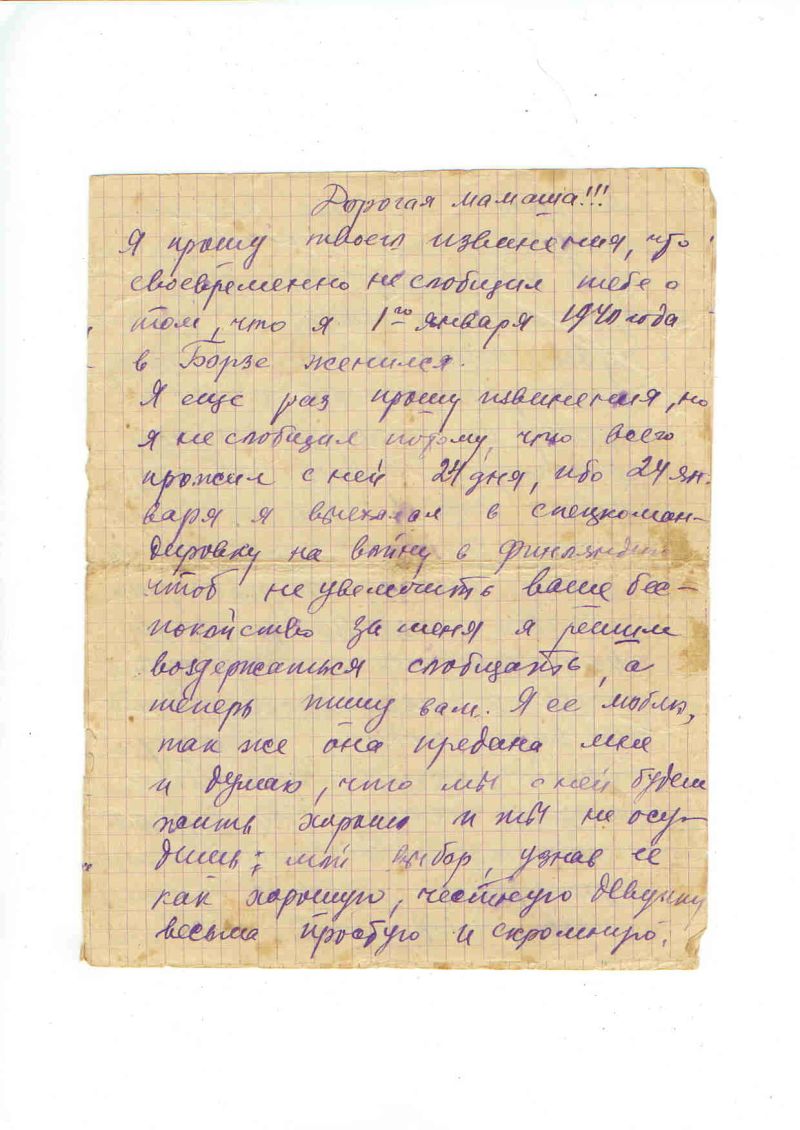 Дорогая мамаша!!!
Я прошу твоего извинения, что
своевременно не сообщил тебе о
том, что я 1го января 1940 года
в Борзе женился.
Я еще раз прошу извинения, но
я не сообщил потому, что всего
прожил с ней 24 дня, ибо 24 ян-
варя я выехал в спецкоман-
дировку на войну с Финляндией
чтоб не увеличить ваше бес-
покойство за меня я решил
воздержаться сообщать, а
теперь пишу вам. Я ее люблю,
так же она предана мне
и думаю, что мы с ней будем
жить хорошо и ты не осу-
дишь; мой выбор, узнав ее
как хорошую, честную девушку
весьма простую и скромную.